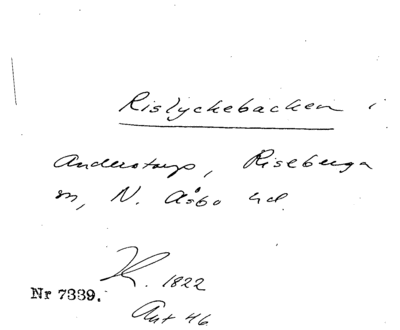 Rislyckebacken i
Anderstorp, Riseberga
sn, N. Åsbo hd.
K. 1822
Nr 7339.
Akt 46